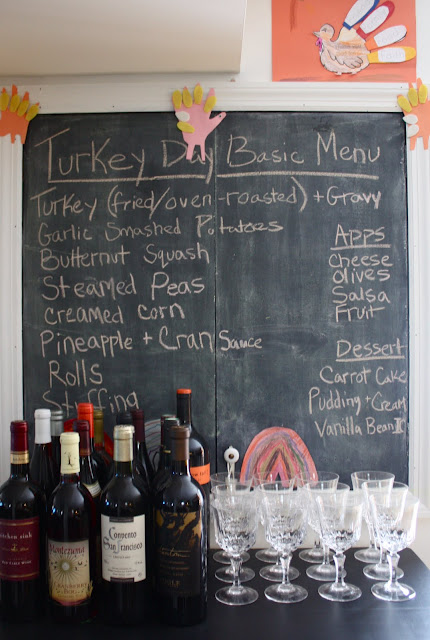 Turkey Day Basic Menu
Turkey (fried/oven-roasted) + Gravy
Garlic Smashed Potatoes
Butternut Squash
Steamed Peas
creamed corn
Pineapple + Cran Sauce
Rolls
Stuffing
Apps
cheese
olives
Salsa
Fruit
Dessert
Carrot Cake
Pudding + Cream
Vanilla Bean
kitchen sink
Montezuma
Convento
San Francisco